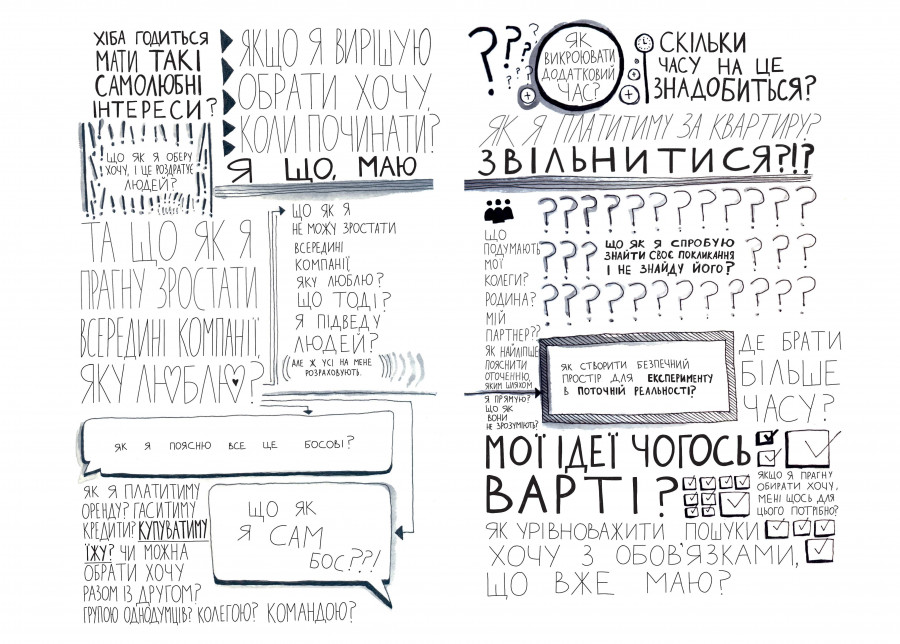 ХІБА ГОДИТЬСЯ
МАТИ ТАКІ
САМОЛЮБНІ
ІНТЕРЕСИ?
ЯКЩО Я ВИРІШУЮ
ОБРАТИ ХОЧУ,
КОЛИ ПОЧИНАТИ?
ЩО ЯК Я ОБЕРУ
ХОЧУ, І ЦЕ РОЗДРАТУЄ
ЛЮДЕЙ?
Я ЩО, МАЮ
ТА ЩО ЯК Я
ПРАГНУ ЗРОСТАТИ
ВСЕРЕДИНІ КОМПАНІЇ,
ЯКУ ЛЮБЛЮ?
ЩО ЯК Я
НЕ МОЖУ ЗРОСТАТИ
ВСЕРЕДИНІ
КОМПАНІЇ,
ЯКУ ЛЮБЛЮ?
ЩО ТОДІ?
Я ПІДВЕДУ
ЛЮДЕЙ?
(АЛЕ Ж УСІ НА МЕНЕ
РОЗРАХОВУЮТЬ.
ЯК Я ПОЯСНЮ ВСЕ ЦЕ БОСОВІ?
ЯК Я ПЛАТИТИМУ
ОРЕНДУ? ГАСИТИМУ
КРЕДИТИ? КУПУВАТИМУ
ЇЖУ? ЧИ МОЖНА
ОБРАТИ ХОЧУ
РАЗОМ ІЗ ДРУГОМ?
ГРУПОЮ ОДНОДУМЦІВ? КОЛЕГОЮ? КОМАНДОЮ?
ЩО ЯК
Я САМ
БОС??!
? ? ? ? ? ? ? ?
ЯК
ВИКРОЮВАТИ
ДОДАТКОВИЙ
ЧАС?
СКІЛЬКИ
ЧАСУ НА ЦЕ
ЗНАДОБИТЬСЯ?
ЯК Я ПЛАТИТИМУ ЗА КВАРТИРУ?
ЗВІЛЬНИТИСЯ?!?
? ? ? ? ? ? ? ? ? ? ? ?
ЩО
ПОДУМАЮТЬ
МОЇ
КОЛЕГИ?
РОДИНА?
МІЙ
ПАРТНЕР??
ЯК НАЙЛІПШЕ
ПОЯСНИТИ
ОТОЧЕННЮ,
ЯКИМ ШЛЯХОМ
Я ПРЯМУЮ?
ЩО ЯК
ВОНИ
НЕ ЗРОЗУМІЮТЬ?
? ? ? ЩО ЯК Я СПРОБУЮ ? ? ?
ЗНАЙТИ СВОЄ ПОКЛИКАННЯ
І НЕ ЗНАЙДУ ЙОГО?
? ? ? ? ? ? ? ? ? ? ? ?
ЯК СТВОРИТИ БЕЗПЕЧНИЙ
ПРОСТІР ДЛЯ ЕКСПЕРИМЕНТУ
В ПОТОЧНІЙ РЕАЛЬНОСТІ?
ДЕ БРАТИ
БІЛЬШЕ
ЧАСУ?
МОЇ ІДЕЇ ЧОГОСЬ
ВАРТІ?
ЯКЩО Я ПРАГНУ
ОБИРАТИ ХОЧУ,
МЕНІ ЩОСЬ ДЛЯ
ЦЬОГО ПОТРІБНО?
ЯК УРІВНОВАЖИТИ ПОШУКИ
ХОЧУ З ОБОВ'ЯЗКАМИ,
ЩО ВЖЕ МАЮ?